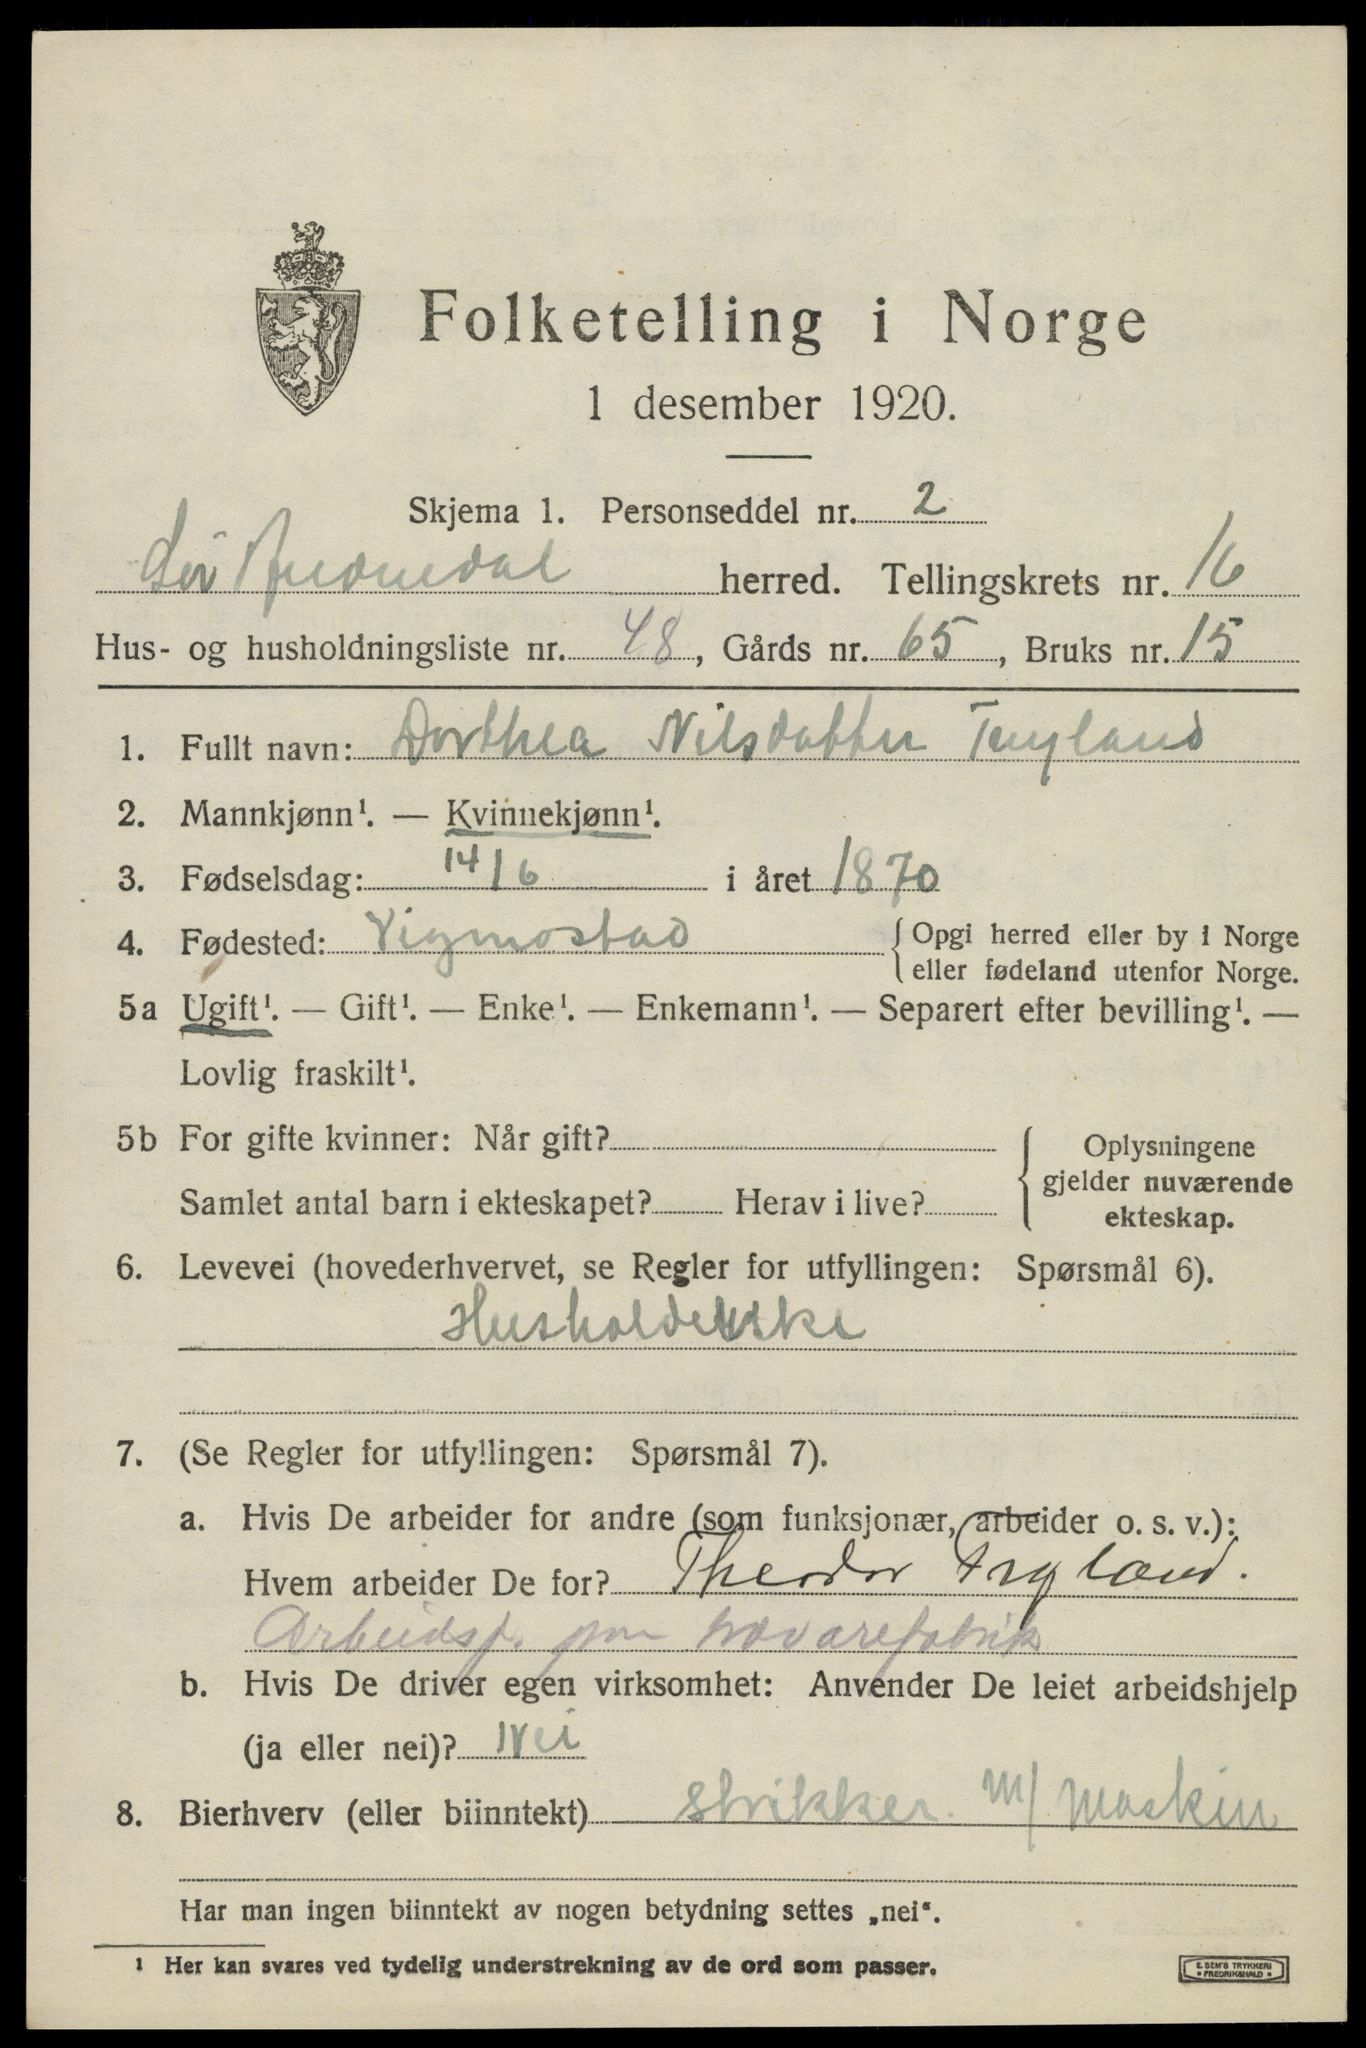 Folketelling i Norge
1 desember 1920.
Skjema 1. Personseddel nr. 2
Sør Audnedal herred. Tellingskrets nr. 16
Hus- og husholdningsliste nr. 48, Gårds nr. 65, Bruks nr. 15
1. Fullt navn: Dorthea Nilsdatter Trygland
2. Mannkjønn¹. — Kvinnekjønn¹.
3. Fødselsdag: 14/6 i året 1870
4. Fødested: Vigmostad { Opgi herred eller by i Norge
eller fødeland utenfor Norge.
5a Ugift¹. — Gift¹. — Enke¹. — Enkemann¹. — Separert efter bevilling¹. —
Lovlig fraskilt¹.
5b For gifte kvinner: Når gift?
Samlet antal barn i ekteskapet? Herav i live?
Oplysningene
gjelder nuværende
ekteskap.
6. Levevei (hovederhvervet, se Regler for utfyllingen: Spørsmål 6).
Husholderske
7. (Se Regler for utfyllingen: Spørsmål 7).
a. Hvis De arbeider for andre (som funksjonær, arbeider o. s. v.):
Hvem arbeider De for? Theodor Trygland.
Arbeidsf. paa trævarefabrik
b. Hvis De driver egen virksomhet: Anvender De leiet arbeidshjelp
(ja eller nei)? Nei
8. Bierhverv (eller biinntekt) strikker m/ maskin
Har man ingen biinntekt av nogen betydning settes „nei“.
¹ Her kan svares ved tydelig understrekning av de ord som passer.
E. SEM'S TRYKKERI
• FREDRIKSHALD •